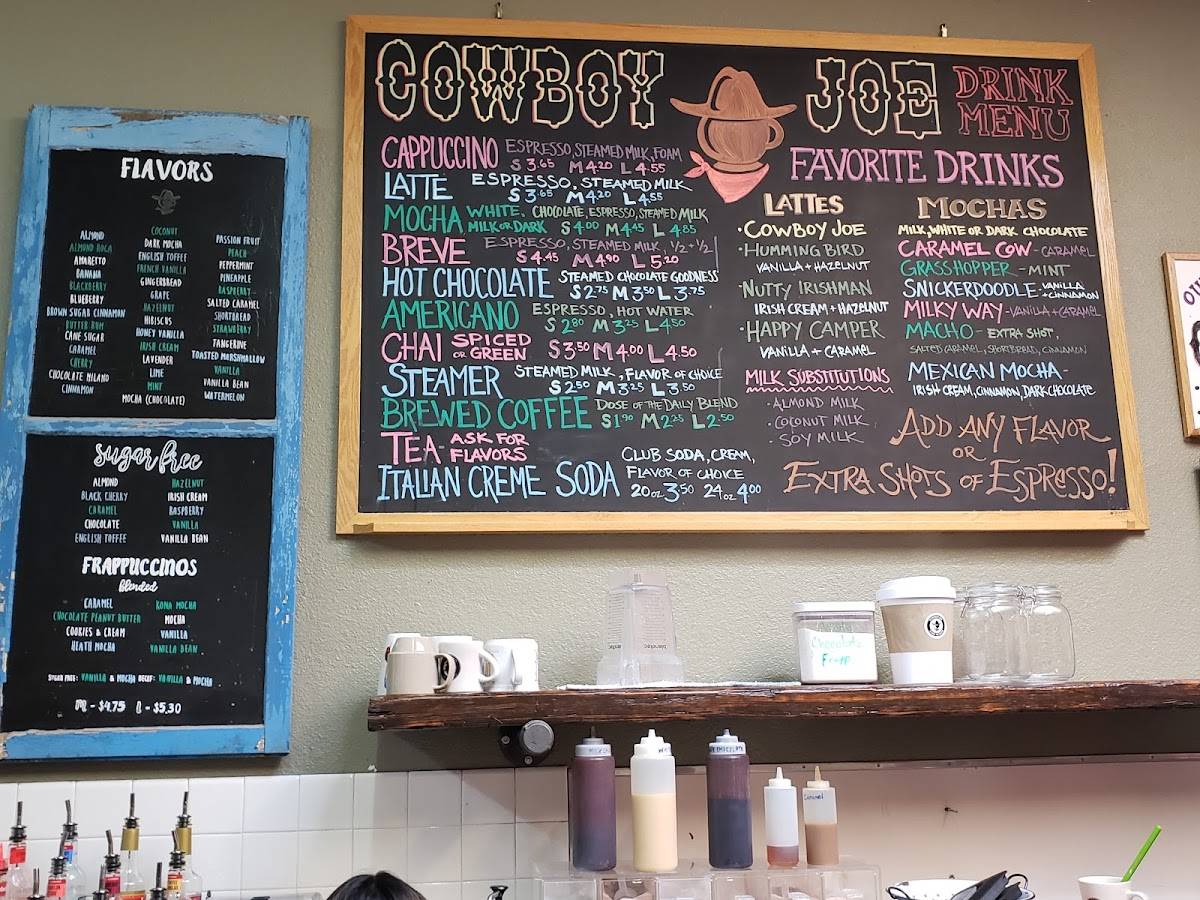 FLAVORS
ALMOND
ALMOND ROCA
AMARETTO
BANANA
BLACKBERRY
BLUEBERRY
BROWN SUGAR CINNAMON
BUTTER RUM
CANE SUGAR
CARAMEL
CHERRY
CHOCOLATE MILANO
CINNAMON
COCONUT
DARK MOCHA
ENGLISH TOFFEE
FRENCH VANILLA
GINGERBREAD
GRAPE
HAZELNUT
HIBISCUS
HONEY VANILLA
IRISH CREAM
LAVENDER
LIME
MINT
MOCHA (CHOCOLATE)
PASSION FRUIT
PEACH
PEPPERMINT
PINEAPPLE
RASPBERRY
SALTED CARAMEL
SHORTBREAD
STRAWBERRY
TANGERINE
TOASTED MARSHMALLOW
VANILLA
VANILLA BEAN
WATERMELON
sugar free
ALMOND
BLACK CHERRY
CARAMEL
CHOCOLATE
ENGLISH TOFFEE
HAZELNUT
IRISH CREAM
RASPBERRY
VANILLA
VANILLA BEAN
FRAPPUCCINOS
blended
CARAMEL
CHOCOLATE PEANUT BUTTER
COOKIES & CREAM
HEATH MOCHA
KONA MOCHA
MOCHA
VANILLA
VANILLA BEAN
SUGAR FREE: VANILLA & MOCHA DECAF: VANILLA & MOCHA
M - $4.75 L - $5.30
COWBOY JOE DRINK MENU
CAPPUCCINO ESPRESSO, STEAMED MILK, FOAM
S 3.65 M 4.20 L 4.55
LATTE ESPRESSO, STEAMED MILK
S 3.65 M 4.20 L 4.55
MOCHA WHITE, MILK OR DARK CHOCOLATE, ESPRESSO, STEAMED MILK
S 4.00 M 4.45 L 4.85
BREVE ESPRESSO, STEAMED MILK, 1/2 + 1/2
S 4.45 M 4.90 L 5.20
HOT CHOCOLATE STEAMED CHOCOLATE GOODNESS
S 2.75 M 3.50 L 3.75
AMERICANO ESPRESSO, HOT WATER
S 2.80 M 3.25 L 4.50
CHAI SPICED OR GREEN S 3.50 M 4.00 L 4.50
STEAMER STEAMED MILK, FLAVOR OF CHOICE
S 2.50 M 3.25 L 3.50
BREWED COFFEE DOSE OF THE DAILY BLEND
S 1.90 M 2.25 L 2.50
TEA - ASK FOR FLAVORS
ITALIAN CREME SODA CLUB SODA, CREAM,
FLAVOR OF CHOICE
20 oz 3.50 24 oz 4.00
FAVORITE DRINKS
LATTES
• COWBOY JOE
• HUMMING BIRD
VANILLA + HAZELNUT
• NUTTY IRISHMAN
IRISH CREAM + HAZELNUT
• HAPPY CAMPER
VANILLA + CARAMEL
MILK SUBSTITUTIONS
• ALMOND MILK
• COCONUT MILK
• SOY MILK
MOCHAS
MILK, WHITE OR DARK CHOCOLATE
CARAMEL COW - CARAMEL
GRASSHOPPER - MINT
SNICKERDOODLE - VANILLA + CINNAMON
MILKY WAY - VANILLA + CARAMEL
MACHO - EXTRA SHOT,
SALTED CARAMEL, SHORTBREAD, CINNAMON
MEXICAN MOCHA -
IRISH CREAM, CINNAMON, DARK CHOCOLATE
ADD ANY FLAVOR
OR
EXTRA SHOTS OF ESPRESSO!
Chocolate
Frapp
Caramel